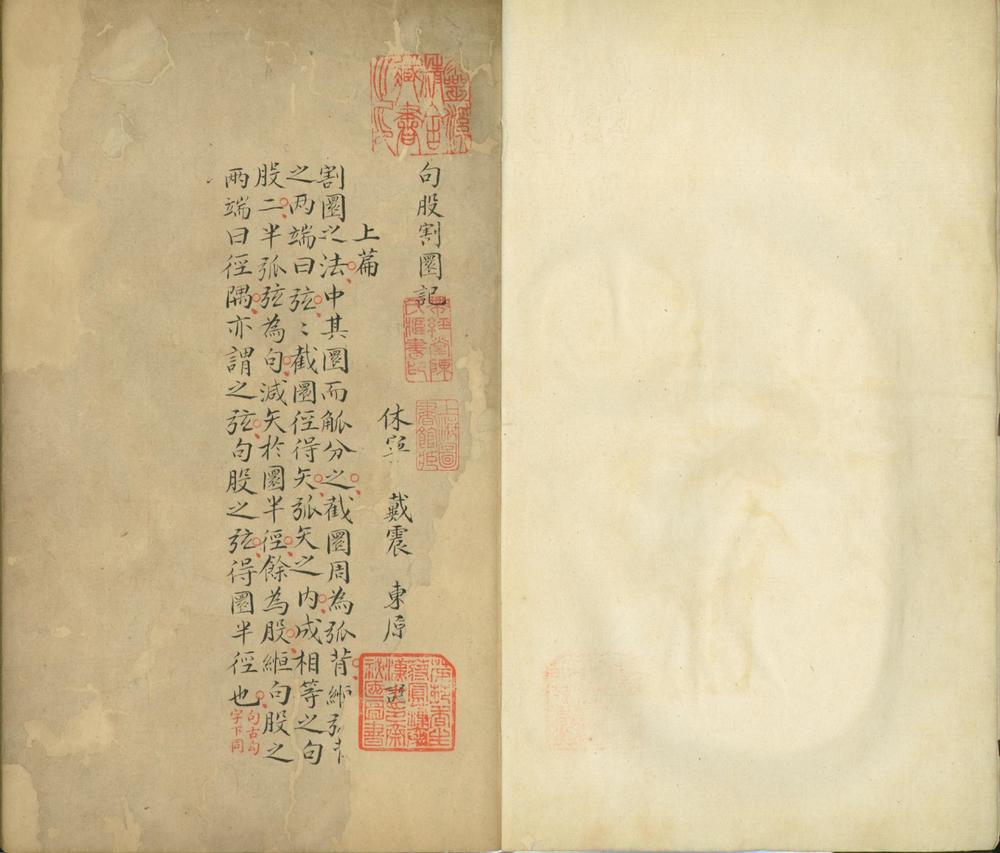 句股割圜記
休寧 戴震 東原
上篇
割圜之法中其圜而觚分之截圜周為弧背縆弧背
之兩端曰弦〻截圜徑得矢弧矢之內成相等之句
股二半弧弦為句減矢於圜半徑餘為股縆句股之
兩端曰徑隅亦謂之弦句股之弦得圜半徑也
句古勾
字下同